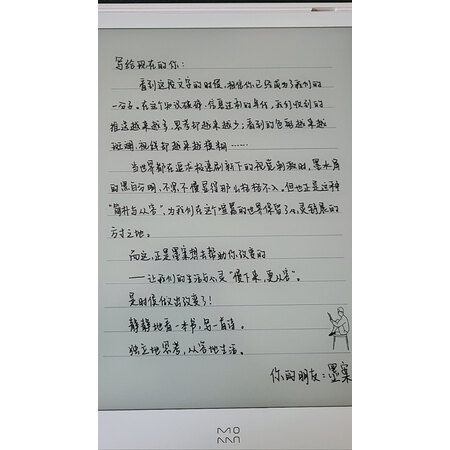 写给现在的你：
看到这段文字的时候，相信你已经成为了我们的
一份子。在这个快议破碎、信息过剩的年代，我们收到的
推送越来越多，思考却越来越少；看到的色彩越来越
斑斓，视线却越来越模糊……
当世界都在追求极速刷新下的视觉刺激时，墨水屏
的黑白分明，不紧不慢显得那么格格不入。但也正是这种
“简朴与从容”，为我们在这个喧嚣的世界保留了心灵舒展的
方寸之地。
而这，正是墨案想去帮助你改变的
——让我们的生活与心灵“慢下来，更从容”。
是时候做出改变了！
静静地看一本书，写一首诗。
独立地思考，从容地生活。
你的朋友：墨案
MOAAN